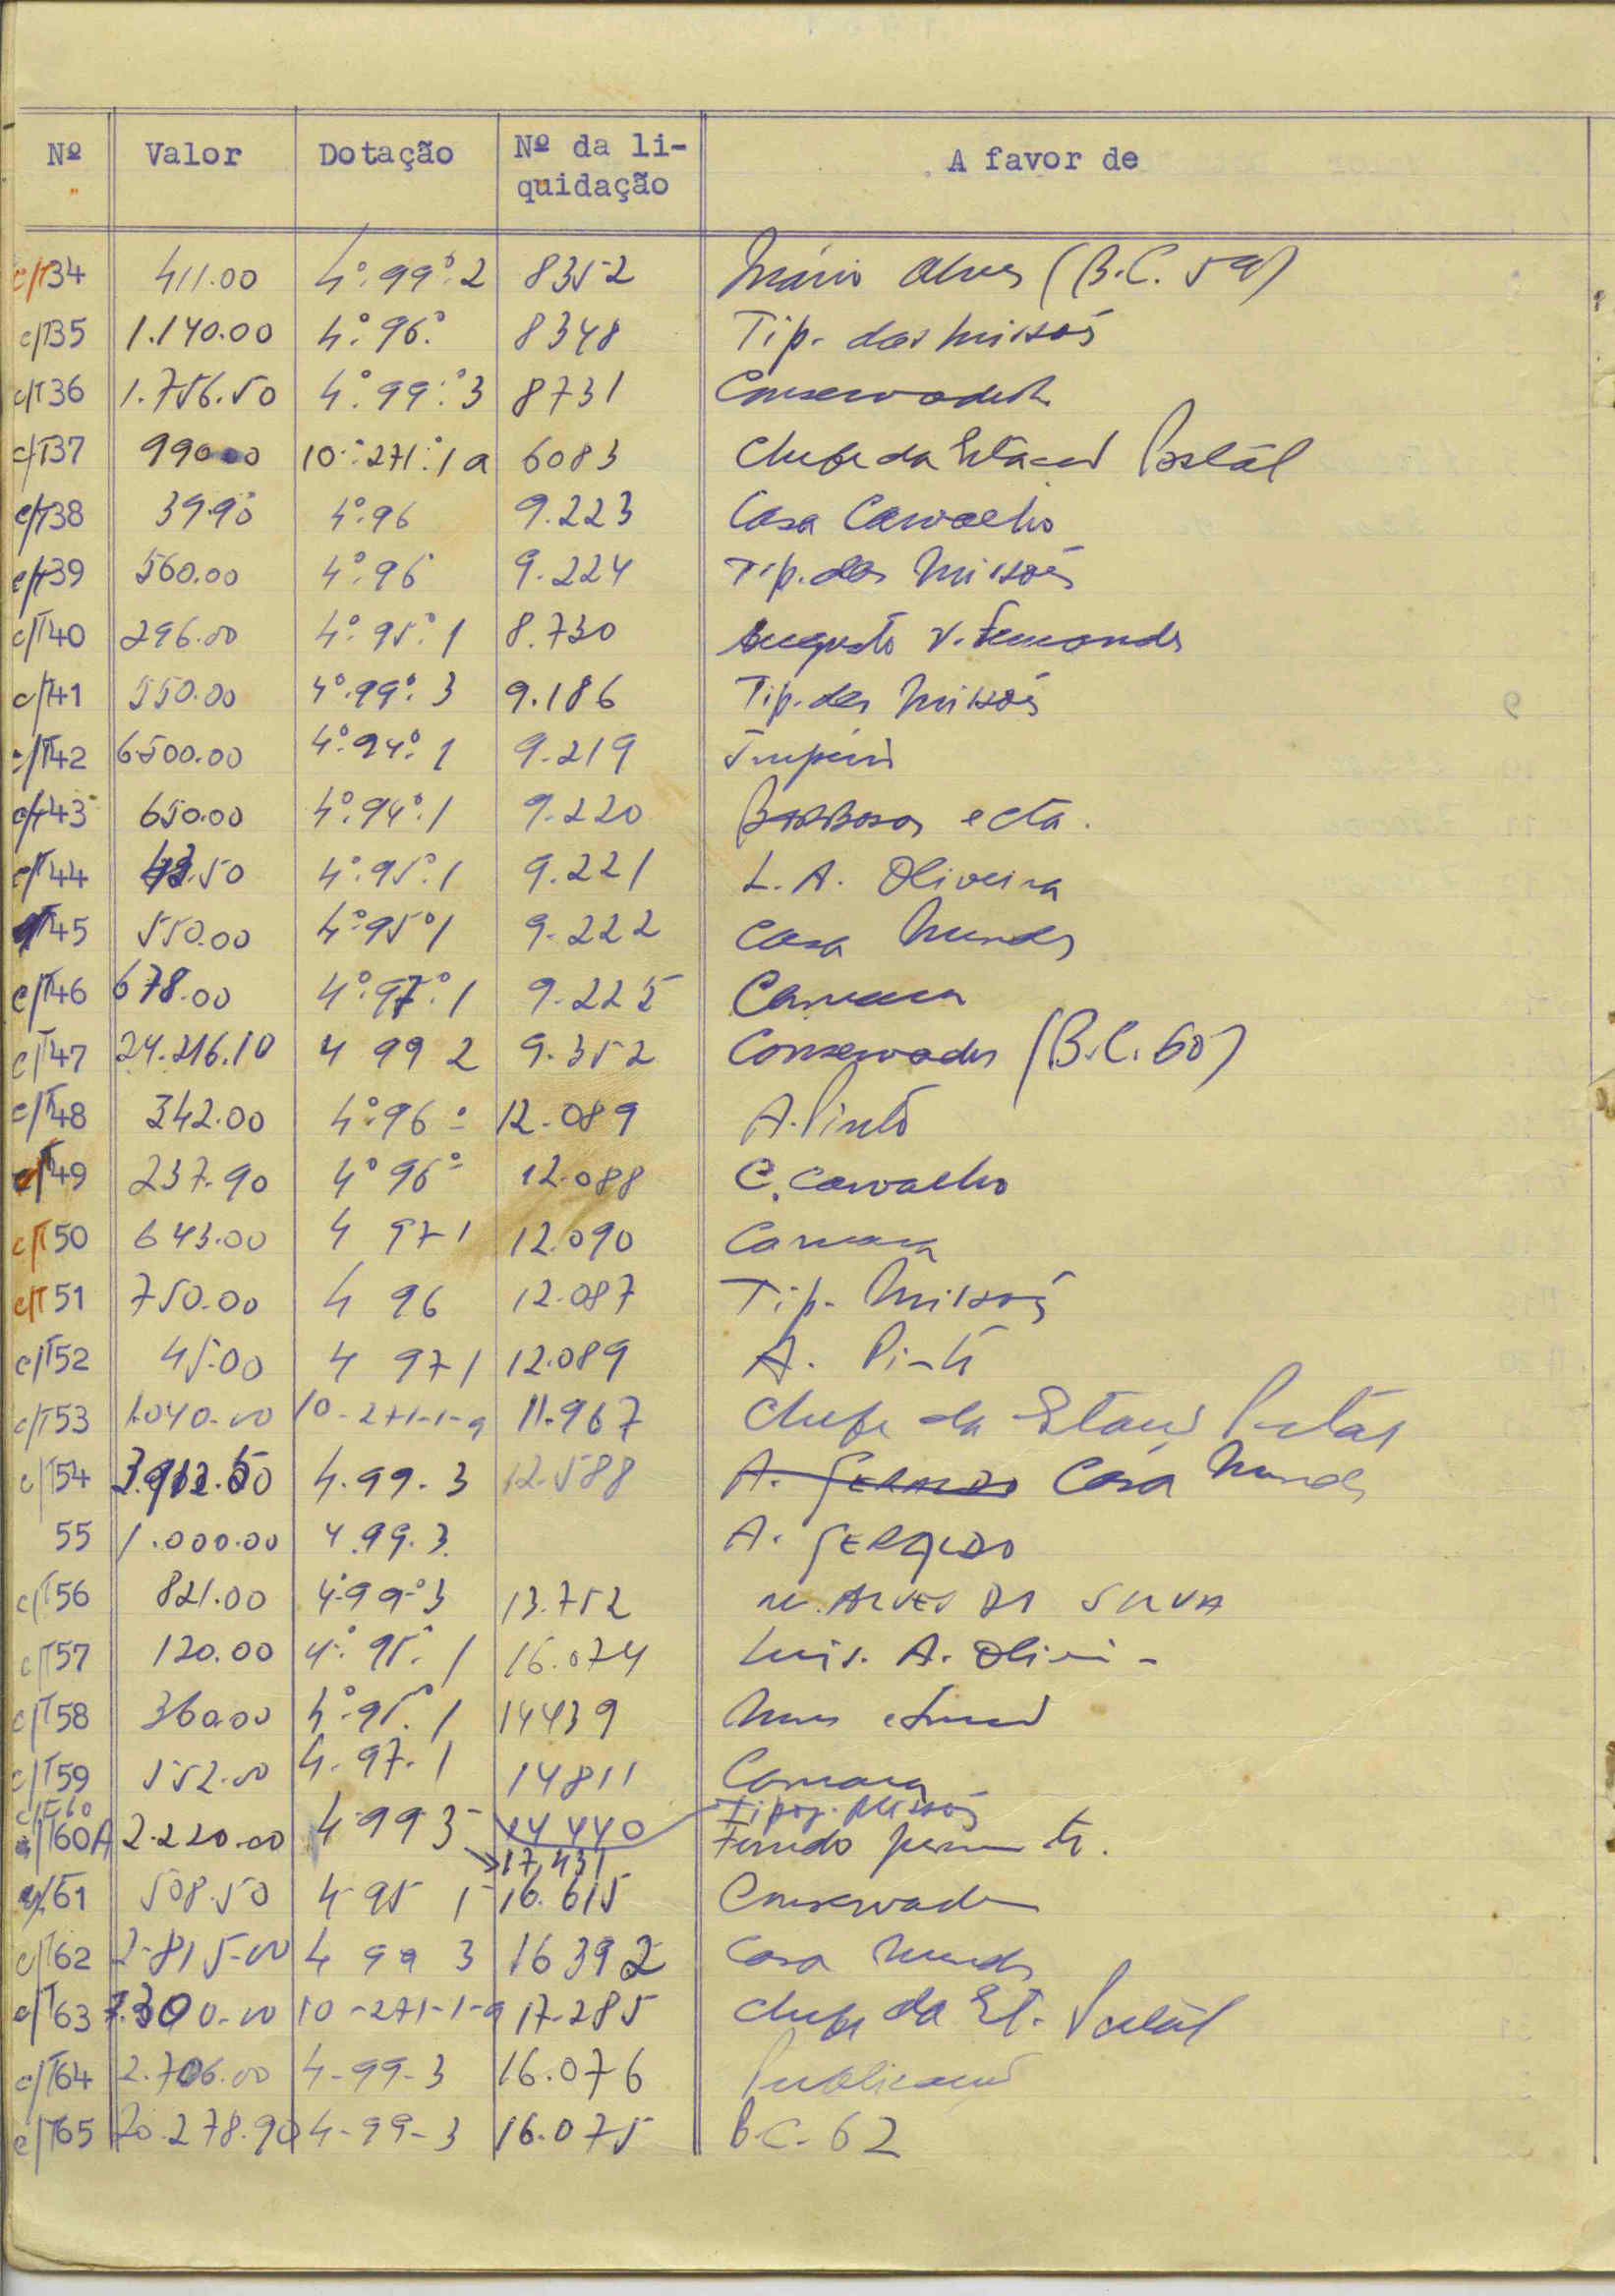 Nº Valor Dotação Nº da li-quidação A favor de
c/T34 411.00 4º.99º.2 8352 Mário Alves (B.C. 59)
c/T35 1.140.00 4º.96º 8348 Tip. das Missões
c/T36 1.756.50 4º.99º.3 8731 Conservador
c/T37 990.00 10º.271º.1 a 6083 Chefe da Estação Postal
c/T38 39.90 4º.96 9.223 Casa Carvalho
c/T39 560.00 4º.96 9.224 Tip. das Missões
c/T40 296.00 4º.95º.1 8.730 Augusto V. Fernandes
c/T41 550.00 4º.99º.3 9.186 Tip. das Missões
c/T42 6500.00 4º.94º.1 9.219 Império
c/T43 650.00 4º.94º.1 9.220 Barbosa
c/T44 .50 4º.95º.1 9.221 L. A. Oliveira
c/T45 550.00 4º.95º1 9.222 Casa Mendes
c/T46 678.00 4º.97º.1 9.225 Camara
c/T47 24.216.10 4 99 2 9.352 Conservador (B.C. 60)
c/T48 342.00 4º.96º 12.089 A. Pinto
c/T49 237.90 4º 96º 12.088 C. Carvalho
c/T50 643.00 4 97 1 12.090 Camara
c/T51 750.00 4 96 12.087 Tip. Missões
c/T52 45.00 4 97 1 12.089 A. Pinto
c/T53 1.040.00 10-271-1-a 11.967 Chefe da Estação Postal
c/T54 4.99.3 12.588 A. GERALDO Casa Mendes
55 1.000.00 4.99.3. A. GERALDO
c/T56 821.00 4º99º3 13.752 M. ALVES DA SILVA
c/T57 120.00 4º.95º.1 16.074 Luis. A. Oliveira
c/T58 360.00 4º.95º.1 14439
c/T59 552.00 4.97.1 14811 Camara
c/T60 Tipog. Missões
c/T60A 2.220.00 4 99 3 14440 Fundo
17.431
c/T61 508.50 4 95 1 16.615 Conservador
c/T62 2.815.00 4 99 3 16392 Casa Mendes
c/T63 7.300.00 10-271-1-a 17.285 Chefe da Est. Postal
c/T64 2.706.00 4-99-3 16.076 Publicações
c/T65 20.278.90 4-99-3 16.075 B.C. 62